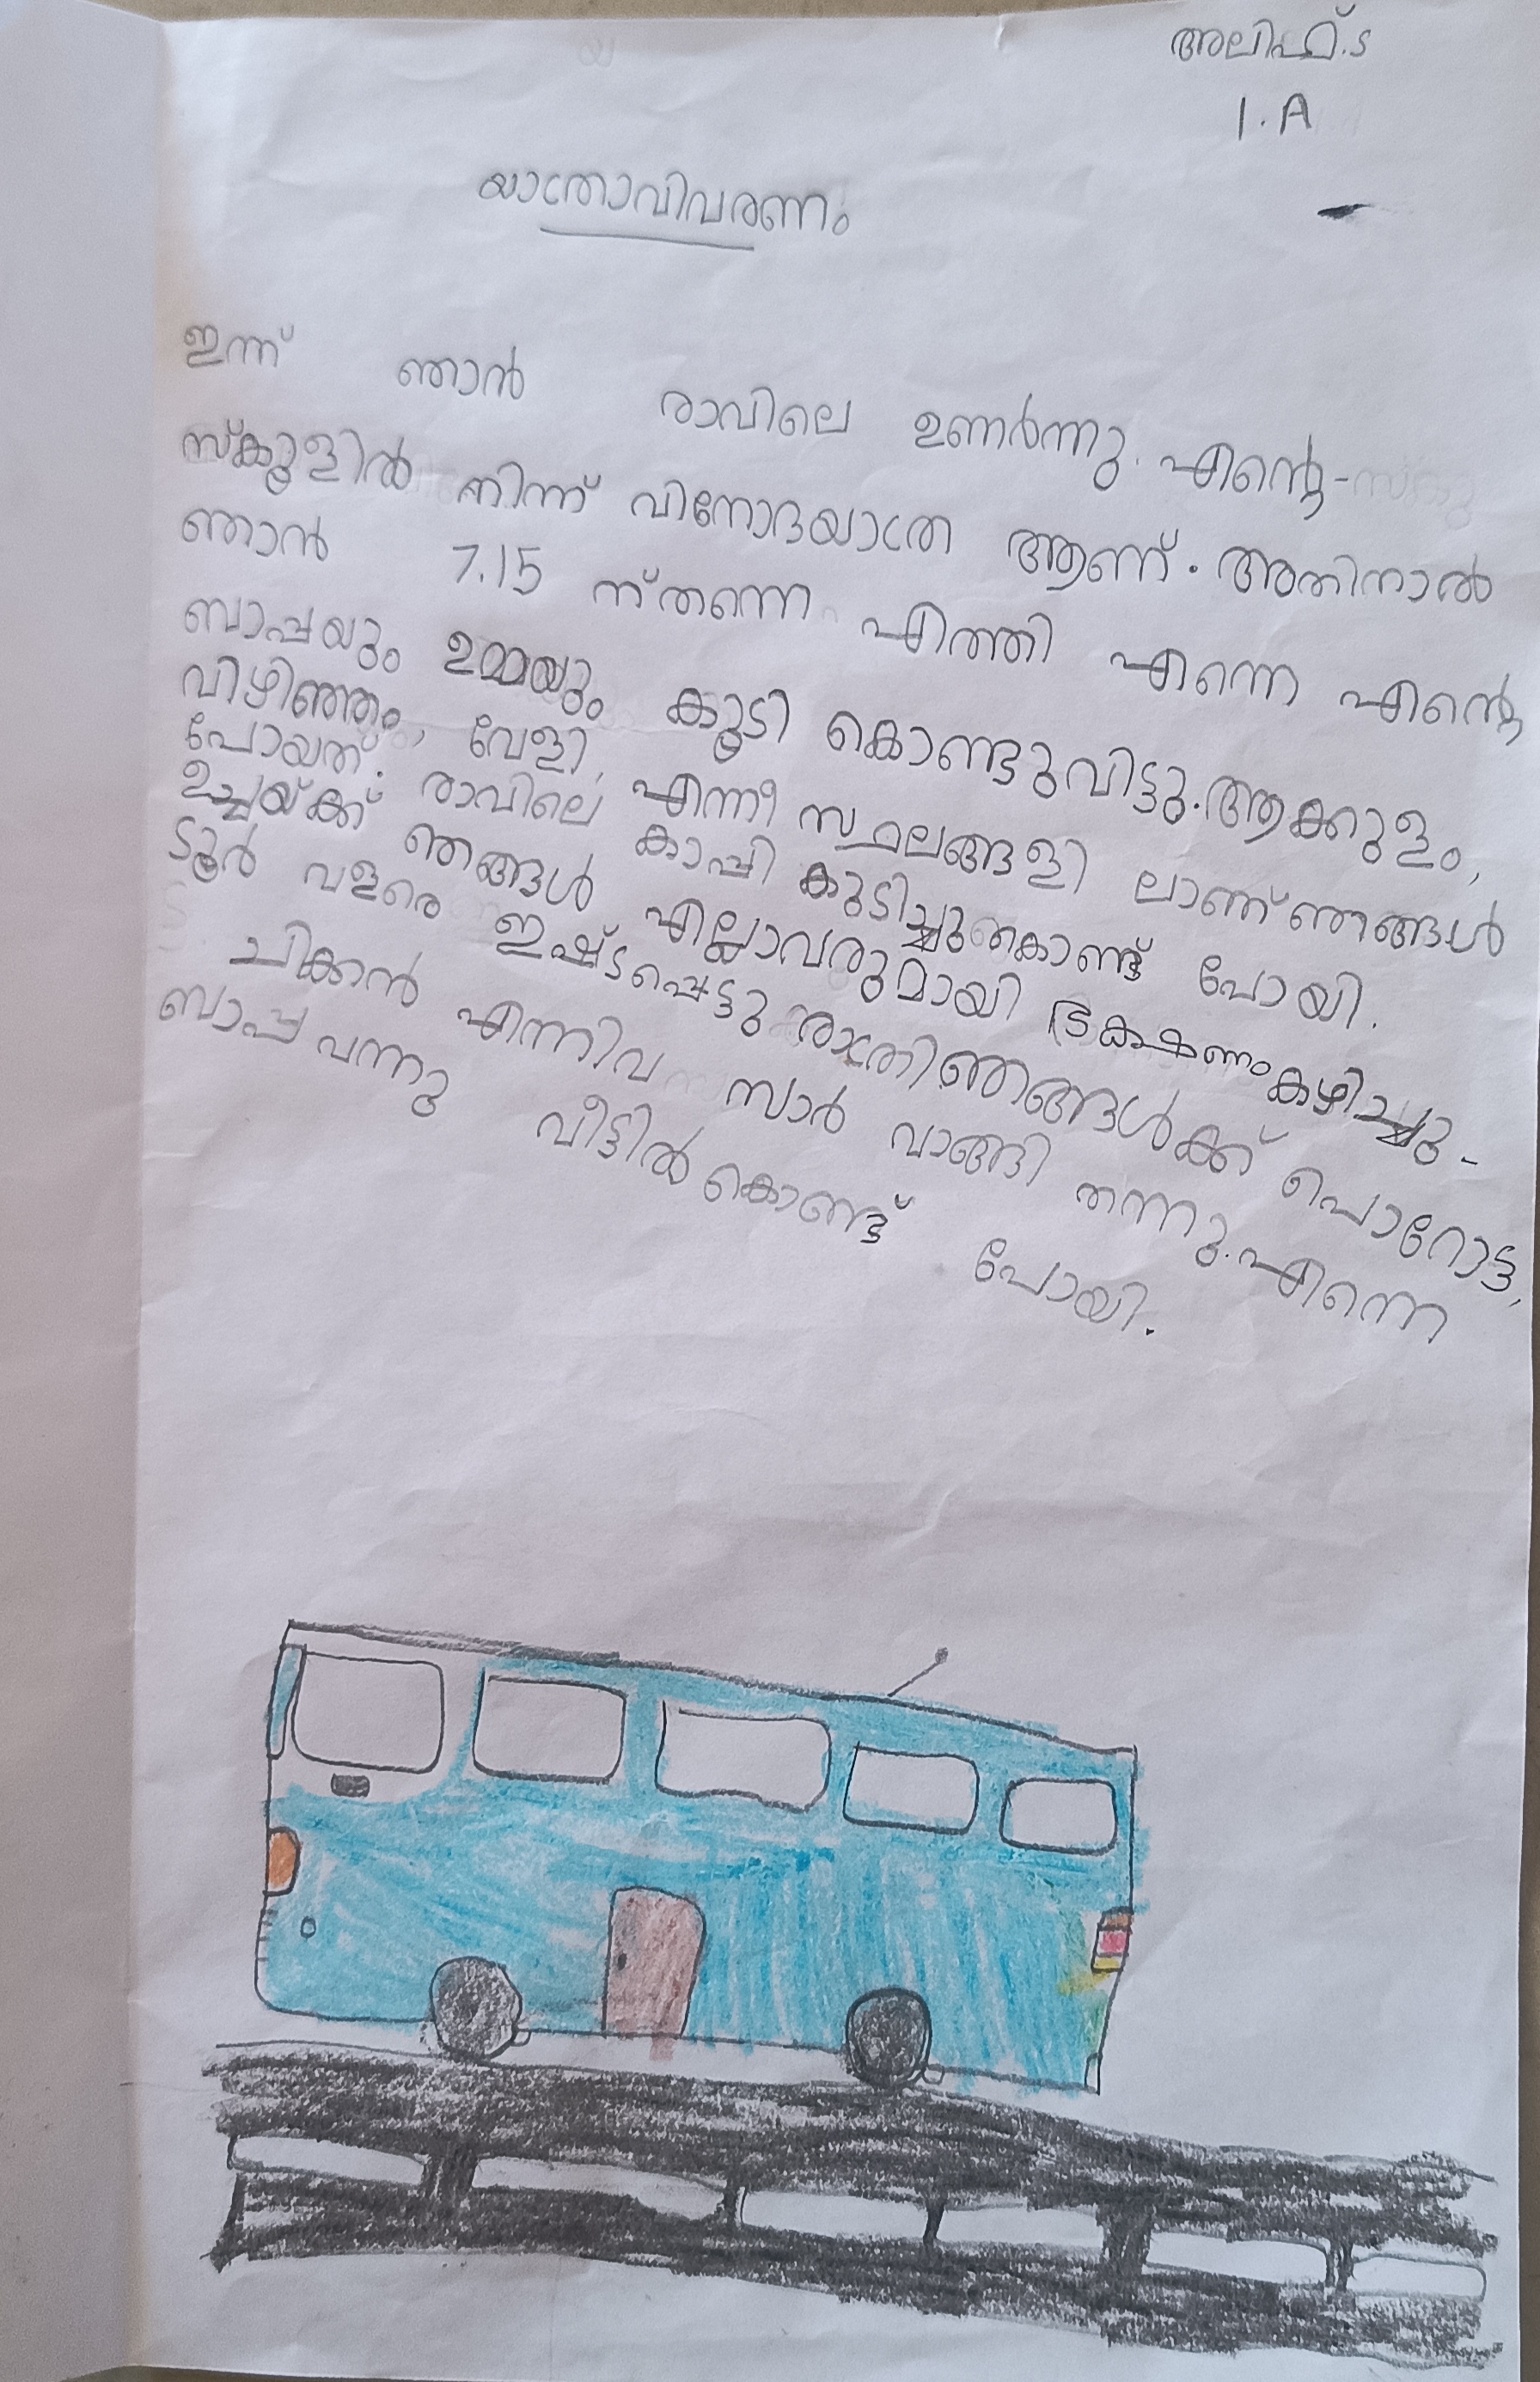 അലിഫ്.s
1.A
യാത്രാവിവരണം
ഇന്ന് ഞാൻ രാവിലെ ഉണർന്നു. എന്റെ-
സ്കൂളിൽ നിന്ന് വിനോദയാത്ര ആണ്. അതിനാൽ
ഞാൻ 7.15 ന് തന്നെ എത്തി എന്നെ എന്റെ
ബാപ്പയും ഉമ്മയും കൂടി കൊണ്ടുവിട്ടു. ആക്കുളം,
വിഴിഞ്ഞം, വേളി, എന്നീ സ്ഥലങ്ങളി ലാണ് ഞങ്ങൾ
പോയത്. രാവിലെ കാപ്പി കുടിച്ചുകൊണ്ട് പോയി.
ഉച്ചയ്ക്ക് ഞങ്ങൾ എല്ലാവരുമായി ഭക്ഷണം കഴിച്ചു-
ടൂർ വളരെ ഇഷ്ടപ്പെട്ടു രാത്രി ഞങ്ങൾക്ക് പൊറോട്ട,
ചിക്കൻ എന്നിവ സാർ വാങ്ങി തന്നു. എന്നെ
ബാപ്പ വന്നു വീട്ടിൽ കൊണ്ട് പോയി.